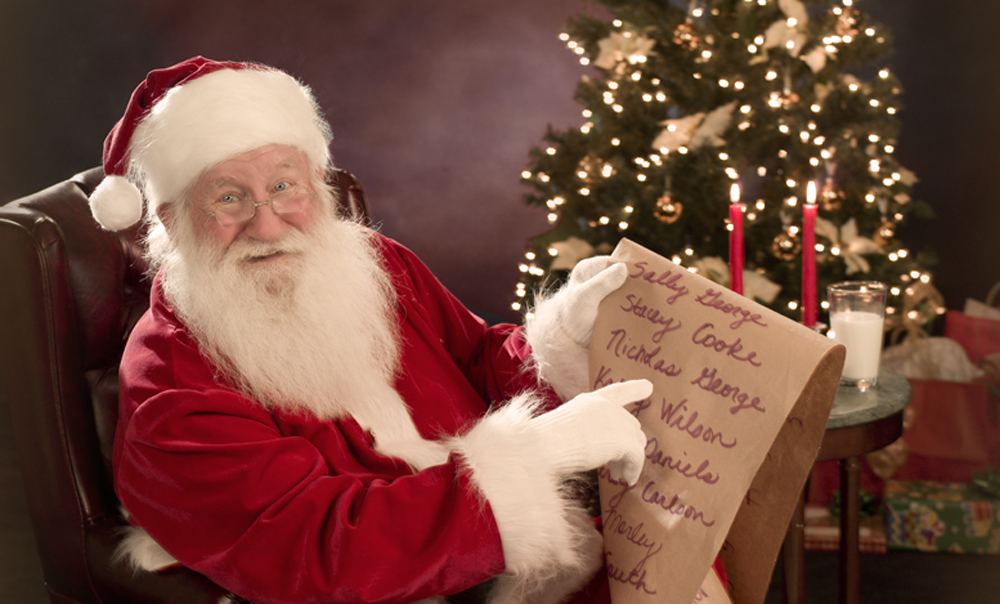 Sally George
Stacey Cooke
Nicholas George
Wilson
Daniels
Carlson
Marley